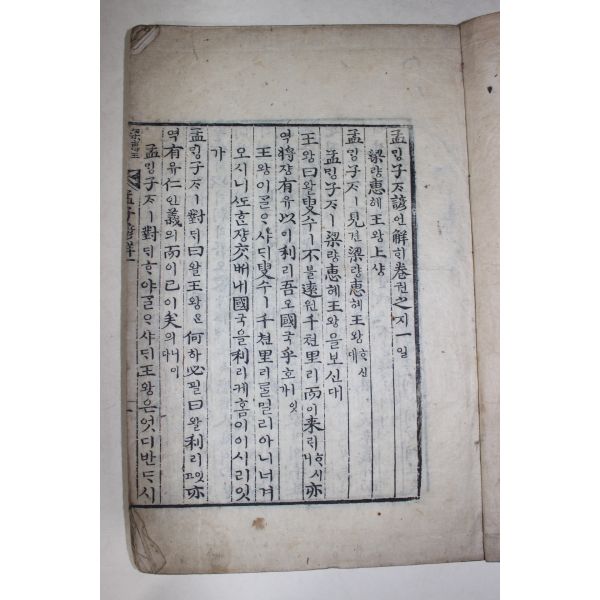 孟밍子ᄌᆞ諺언解ᄒᆡ卷권之지一일
梁량惠혜王왕上샹
孟밍子ᄌᆞㅣ見견梁량惠혜王왕ᄒᆞ신대
孟밍子ᄌᆞㅣ梁량惠혜王왕을보신대
王왕曰왈叟수ㅣ不블遠원千쳔里리而이來ᄅᆡᄒᆞ시니亦
역將쟝有유以이利리吾오國국乎호잇가
王왕이ᄀᆞᆯᄋᆞ샤ᄃᆡ叟수ㅣ千쳔里리ᄅᆞᆯ멀리아니너겨
오시니ᄯᅩᄒᆞᆫ쟝내國국을利리케홈이이시리잇
가
孟밍子ᄌᆞㅣ對ᄃᆡ曰왈王왕은何하必필曰왈利리잇고亦
역有유仁인義의而이已이矣의니이다
孟밍子ᄌᆞㅣ對ᄃᆡᄒᆞ야ᄀᆞᆯᄋᆞ샤ᄃᆡ王왕은엇디반ᄃᆞ시
梁惠王 孟子諺解一 一